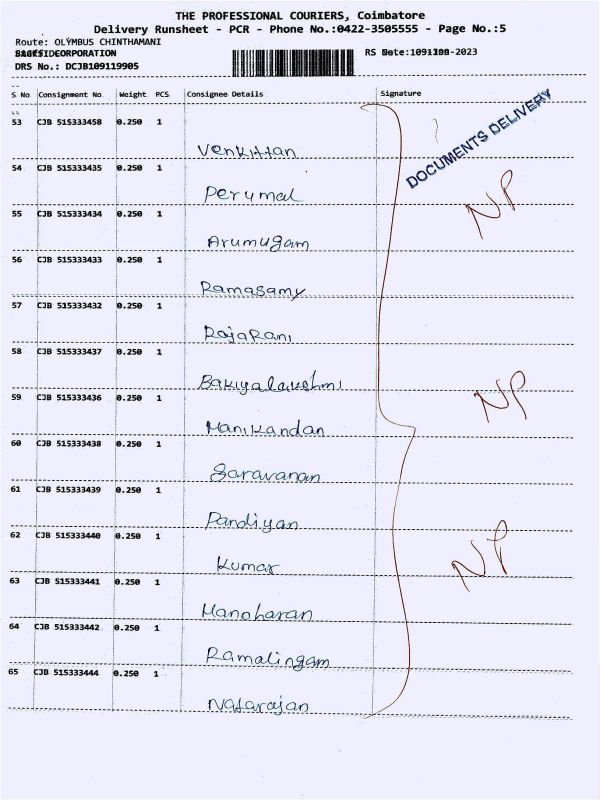 THE PROFESSIONAL COURIERS, Coimbatore
Delivery Runsheet - PCR - Phone No.:0422-3505555 - Page No.:5
Route: OLYMBUS CHINTHAMANI
RS Date:
DRS No.: DCJB109119905
S No Consignment No. Weight PCS Consignee Details Signature
DOCUMENTS DELIVERY
53 CJB 515333458 0.250 1
Venkittan
54 CJB 515333435 0.250 1
Perumal
NP
55 CJB 515333434 0.250 1
Arumugam
56 CJB 515333433 0.250 1
Ramasamy
57 CJB 515333432 0.250 1
RajaRani
58 CJB 515333437 0.250 1
Bakiyalakshmi
NP
59 CJB 515333436 0.250 1
Manikandan
60 CJB 515333438 0.250 1
Saravanan
61 CJB 515333439 0.250 1
Pandiyan
62 CJB 515333440 0.250 1
Kumar
NP
63 CJB 515333441 0.250 1
Manoharan
64 CJB 515333442 0.250 1
Ramalingam
65 CJB 515333444 0.250 1
Natarajan